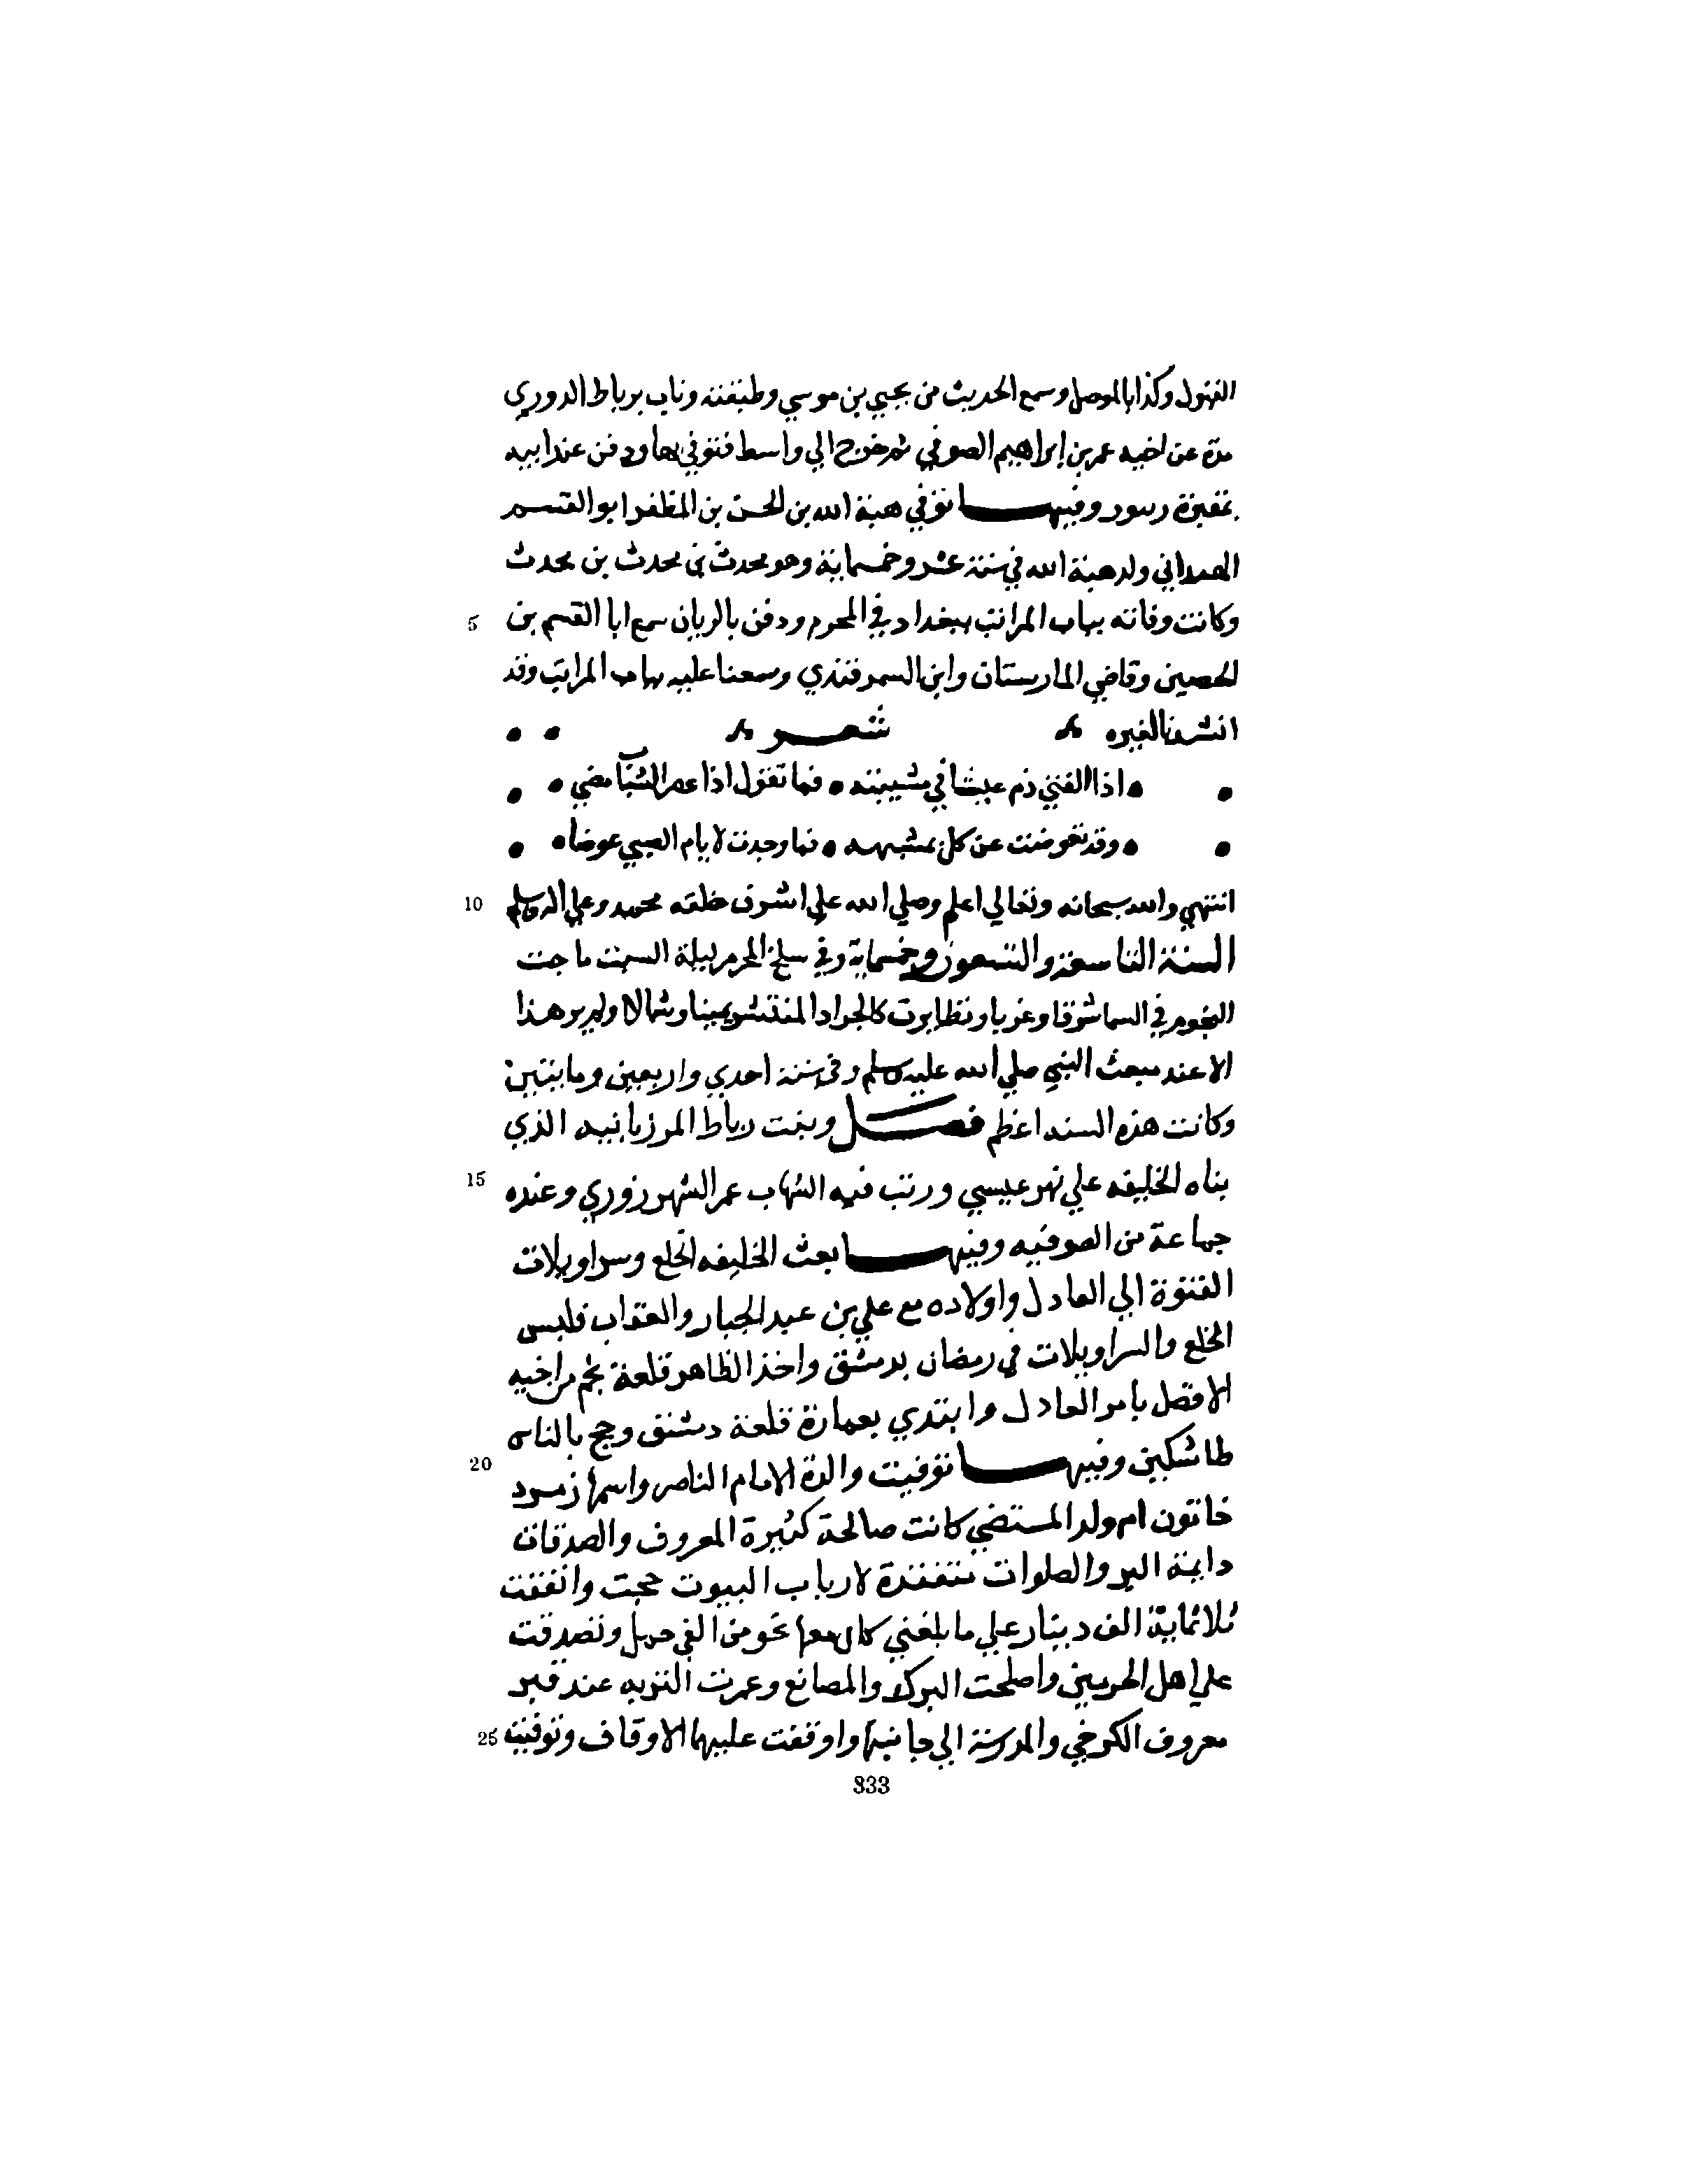 القبول وكذا بالموصل وسمع الحديث من يحيي بن موسي وطبقته وناب برباط الدوري
مدة عن اخيه عمر بن ابراهيم الصوفي ثم خرج الي واسط فتوفي بها ودفن عند ابيه
بمقبرة وفيها توفي هبة الله بن الحسن بن المظفر ابو القسم
الهمداني ولد هبة الله في سنة عشر وخمسماية وهو محدث بن محدث بن محدث
5 وكانت وفاته بباب المراتب ببغداد في المحرم ودفن بالريان سمع ابا القسم بن
الحصين وقاضي المارستان وابن السمرقندي وسمعنا عليه بباب المراتب وقد
انشدنا لغيره شعر
اذا الفتي ذم عيشا في شبيبته فما تقول اذا عصر الشباب مضي
وقد تعوضت عن كل بمشبهه فما وجدت لايام الصبي عوضا
10 انتهي والله سبحانه وتعالي اعلم وصلي الله علي اشرف خلقه محمد وعلي اله وسلم
السنة التاسعة والتسعون وخمسماية وفي سلخ المحرم ليلة السبت ماجت
النجوم في السما شرقا وغربا وتطايرت كالجراد المنتشر يمينا وشمالا ولم ير هذا
الا عند مبعث النبي صلي الله عليه وسلم وفي سنة احدي واربعين ومايتين
وكانت هذه السنه اعظم فصل وبنت رباط المرزبانيه الذي
15 بناه الخليفه علي نهر عيسي ورتب فيه الشهاب عمر الشهرزوري وعنده
جماعة من الصوفيه وفيها بعث الخليفه الخلع وسراويلات
الفتوة الي العادل واولاده مع علي بن عبد الجبار والعقاب فلبس
الخلع والسراويلات في رمضان بدمشق واخذ الظاهر قلعة نجم من اخيه
الافضل بامر العادل وابتدي بعمارة قلعة دمشق وحج بالناس
20 طاشكين وفيها توفيت والدة الامام الناصر واسمها زمرد
خاتون ام ولد المستضي كانت صالحة كثيرة المعروف والصدقات
دايمة البر والصلوات متفقدة لارباب البيوت حجت وانفقت
ثلاثماية الف دينار علي ما بلغني كان معها نحو من الفي جمل وتصدقت
علي اهل الحرمين واصلحت البرك والمصانع وعمرت التربه عند قبر
25 معروف الكرخي والمدرسة الي جانبها واوقفت عليهما الاوقاف وتوفيت
333